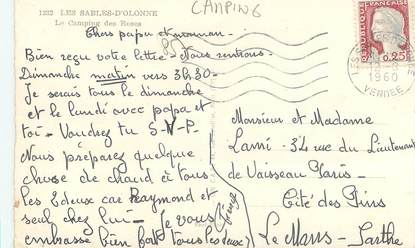 CAMPING
1232 LES SABLES-D'OLONNE
Le Camping des Roses
Chers papa et maman -
Bien reçu votre lettre - Nous rentrons
Dimanche matin vers 3h30 -
Je serais tous le dimanche
et le lundi avec papa et
toi - Voudrez tu S-V-P.
Nous préparez quelque
chose de chaud à tous
les deux car Raymond et
seul chez lui - Je vous
embrasse bien fort tous les deux
Monsieur et Madame
Lamé - 34 rue du Lieutenant
de Vaisseau Paris -
Cité des Pins
Le Mans - Sarthe
FRANÇAISE
0,25
1960
VENDEE